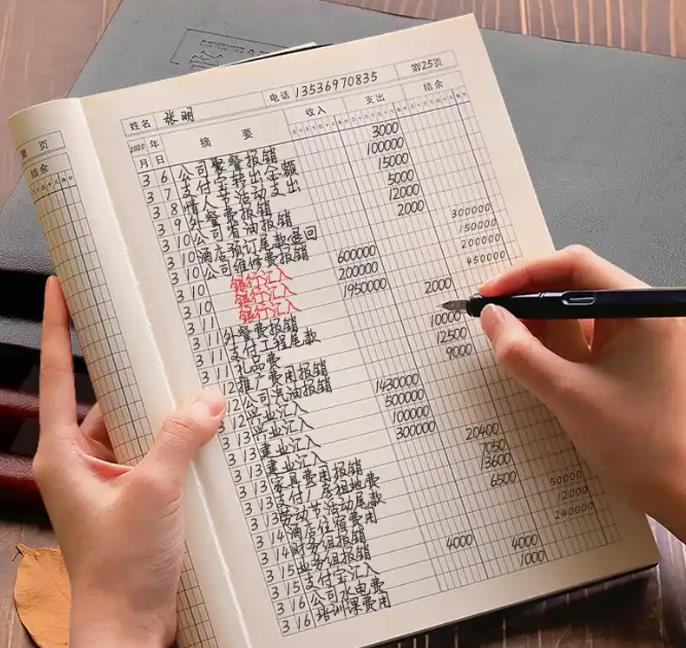 页
结余
姓名 张明 电话 13536970835 第25页
2020 年 摘要 收入 支出 结余
月 日
3 6 公司聚餐报销 3000
3 7 支付宝转出金额 100000
3 8 情人节活动支出 15000
3 9 外餐费报销 5000
3 10 公司省油报销 12000
3 10 酒店预订尾款退回 2000
3 10 公司维修费报销 300000
3 10 银行汇入 600000 150000
3 10 银行汇入 200000 200000
银行汇入 1950000 450000
3 11 外餐费报销 2000
3 11 支付工程尾款 10000
3 11 礼品费 12500
12 推广费用报销 9000
12 公司汽油报销
3 12 兴业汇入 1430000
3 13 兴业汇入 500000
3 13 建业汇入 100000
3 13 建业汇入 300000
3 13 家具费用报销 20400
3 13 支付厂房租地费 7050
3 13 劳动节活动尾款 13600
3 14 酒店住宿费用 6500
3 14 财务组报销 50000
3 15 业务组报销 12000
3 15 支付宝汇入 4000 240000
3 16 公司水电费 4000
3 16 培训课费用 1000